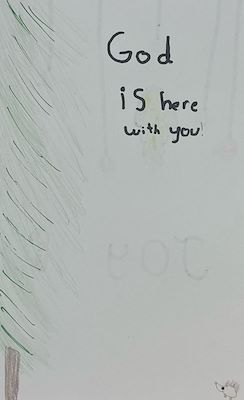 God
is here
with you!
JOY